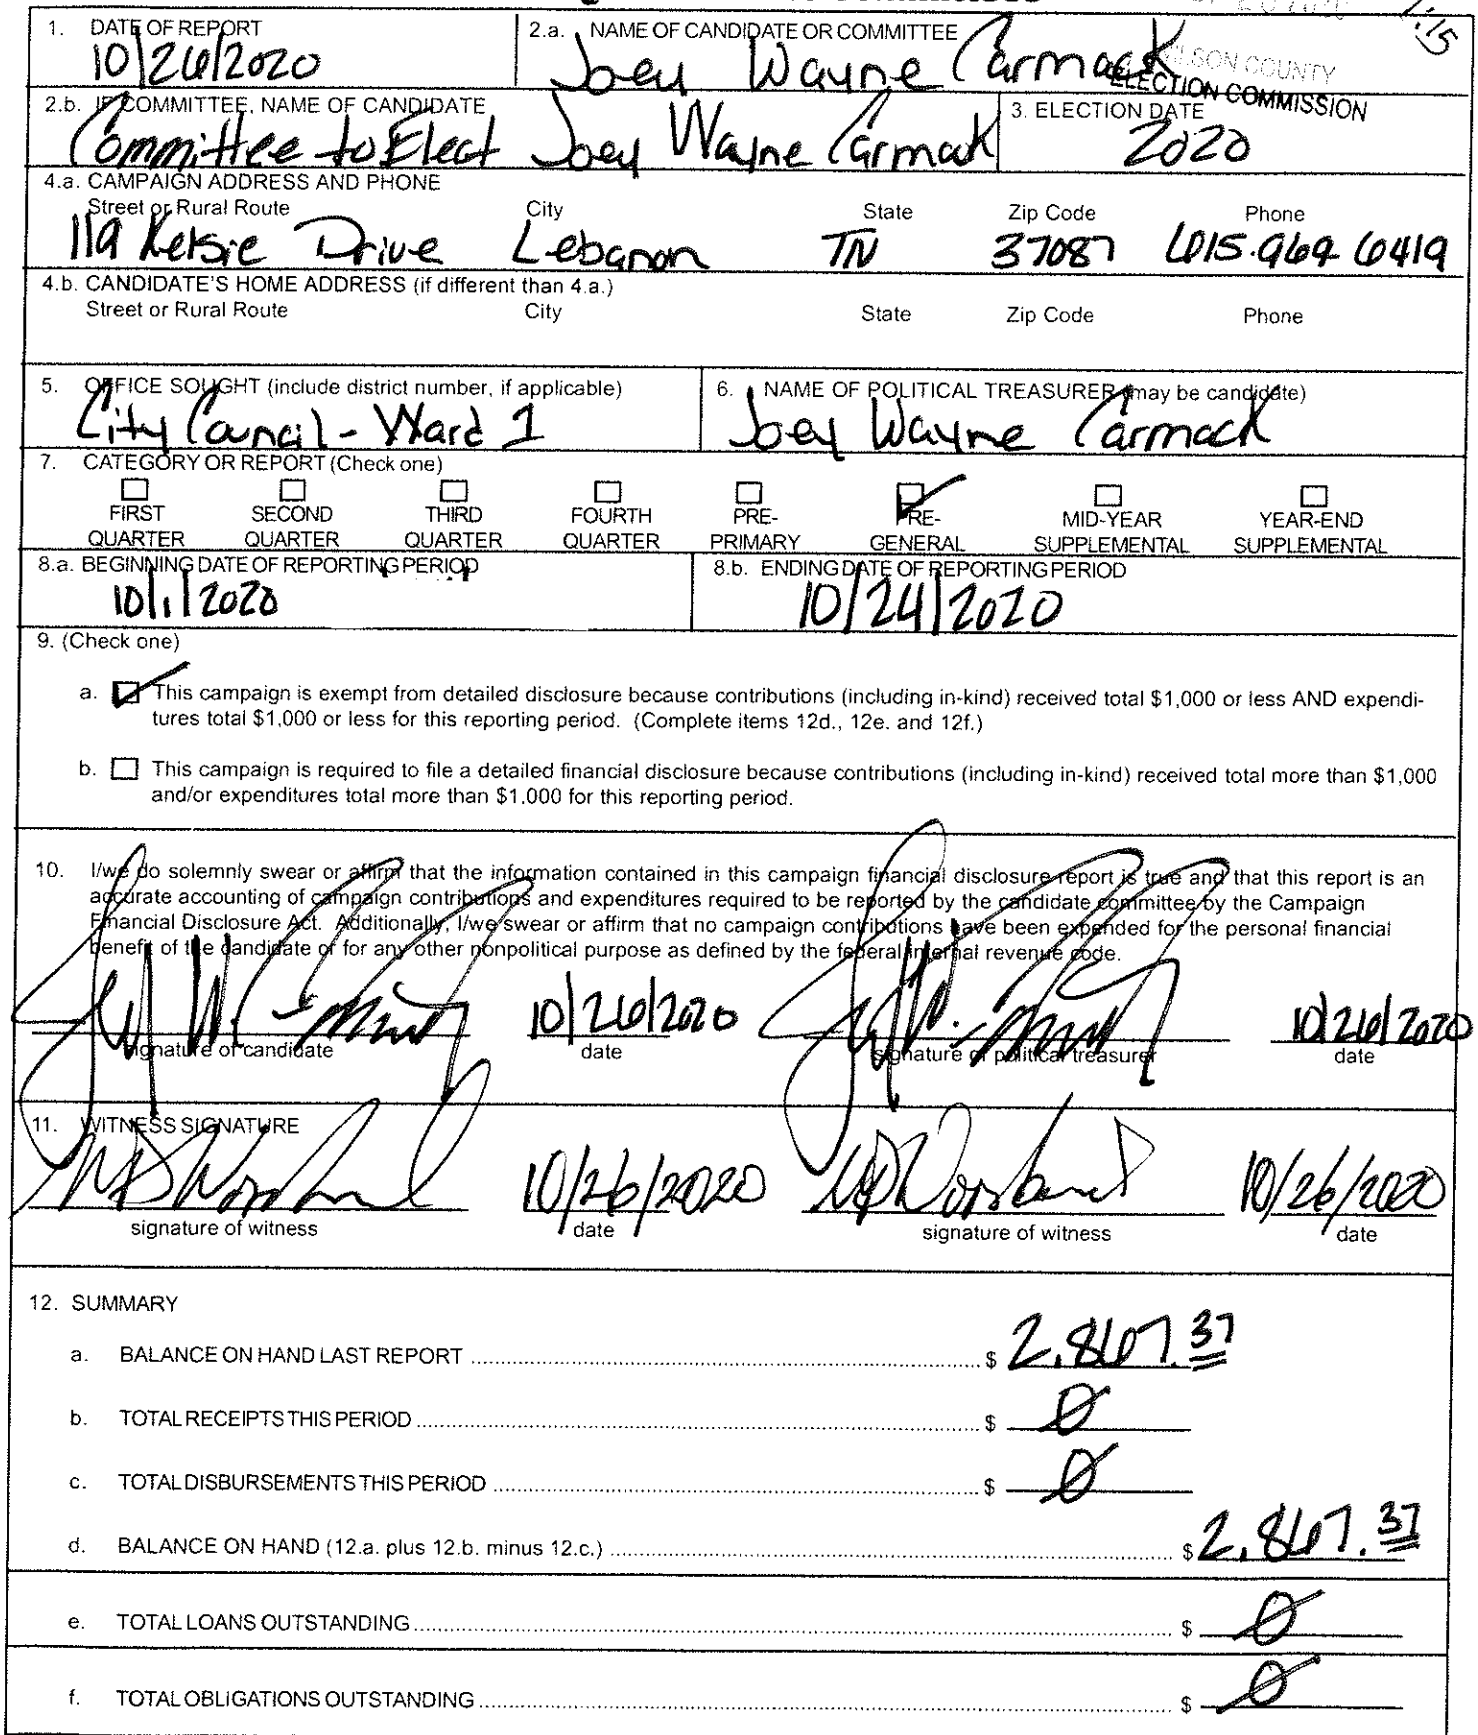 1. DATE OF REPORT
10/26/2020
2.a. NAME OF CANDIDATE OR COMMITTEE
Joey Wayne Carmack
WILSON COUNTY
ELECTION COMMISSION
1:15
2.b. IF COMMITTEE, NAME OF CANDIDATE
Committee to Elect Joey Wayne Carmack
3. ELECTION DATE
2020
4.a. CAMPAIGN ADDRESS AND PHONE
Street or Rural Route City State Zip Code Phone
119 Kelsie Drive Lebanon TN 37087 615.969 6419
4.b. CANDIDATE'S HOME ADDRESS (if different than 4.a.)
Street or Rural Route City State Zip Code Phone
5. OFFICE SOUGHT (include district number, if applicable)
City Council - Ward 1
6. NAME OF POLITICAL TREASURER (may be candidate)
Joey Wayne Carmack
7. CATEGORY OR REPORT (Check one)
FIRST QUARTER
SECOND QUARTER
THIRD QUARTER
FOURTH QUARTER
PRE-PRIMARY
PRE-GENERAL
MID-YEAR SUPPLEMENTAL
YEAR-END SUPPLEMENTAL
8.a. BEGINNING DATE OF REPORTING PERIOD
10/1/2020
8.b. ENDING DATE OF REPORTING PERIOD
10/24/2020
9. (Check one)
a. This campaign is exempt from detailed disclosure because contributions (including in-kind) received total $1,000 or less AND expendi-
tures total $1,000 or less for this reporting period. (Complete items 12d., 12e. and 12f.)
b. This campaign is required to file a detailed financial disclosure because contributions (including in-kind) received total more than $1,000
and/or expenditures total more than $1.000 for this reporting period.
10. I/we do solemnly swear or affirm that the information contained in this campaign financial disclosure report is true and that this report is an
accurate accounting of campaign contributions and expenditures required to be reported by the candidate committee by the Campaign
Financial Disclosure Act. Additionally, I/we swear or affirm that no campaign contributions have been expended for the personal financial
benefit of the candidate or for any other nonpolitical purpose as defined by the federal internal revenue code.
10/26/2020 10/26/2020
signature of candidate date signature of political treasurer date
11. WITNESS SIGNATURE
10/26/2020 10/26/2020
signature of witness date signature of witness date
12. SUMMARY
a. BALANCE ON HAND LAST REPORT $ 2,867.37
b. TOTAL RECEIPTS THIS PERIOD $ 0
c. TOTAL DISBURSEMENTS THIS PERIOD $ 0
d. BALANCE ON HAND (12.a. plus 12.b. minus 12.c.) $ 2,867.37
e. TOTAL LOANS OUTSTANDING $ 0
f. TOTAL OBLIGATIONS OUTSTANDING $ 0